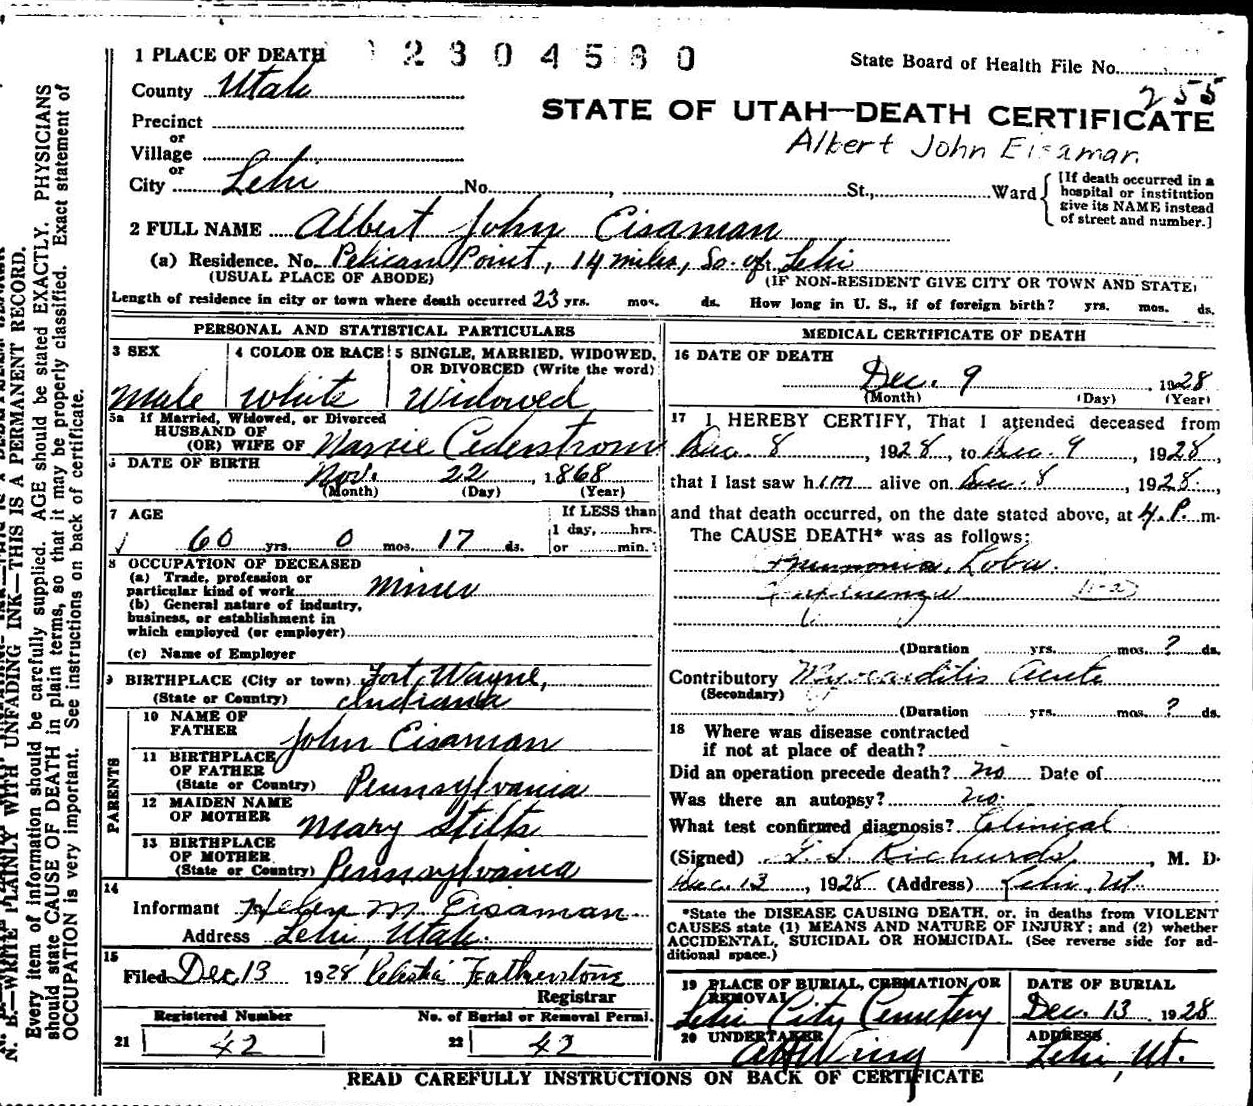 1 PLACE OF DEATH 2304580
State Board of Health File No.
County Utah
255
STATE OF UTAH—DEATH CERTIFICATE
Precinct
Albert John Eisaman
or
Village
or
City Lehi No. , St., Ward
[If death occurred in a
hospital or institution
give its NAME instead
of street and number.]
2 FULL NAME Albert John Eisaman
(a) Residence. No. Pelican Point, 14 miles, So. of Lehi
(USUAL PLACE OF ABODE) (IF NON-RESIDENT GIVE CITY OR TOWN AND STATE)
Length of residence in city or town where death occurred 23 yrs. mos. ds. How long in U. S., if of foreign birth? yrs. mos. ds.
PERSONAL AND STATISTICAL PARTICULARS
3 SEX 4 COLOR OR RACE 5 SINGLE, MARRIED, WIDOWED,
OR DIVORCED (Write the word)
Male White Widowed
5a If Married, Widowed, or Divorced
HUSBAND OF
(OR) WIFE OF Cederstrom
6 DATE OF BIRTH Nov. 22, 1868
(Month) (Day) (Year)
7 AGE If LESS than
1 day, hrs.
60 yrs. 0 mos. 17 ds. or min.
8 OCCUPATION OF DECEASED
(a) Trade, profession or
particular kind of work Miner
(b) General nature of industry,
business, or establishment in
which employed (or employer)
(c) Name of Employer
9 BIRTHPLACE (City or town) Fort Wayne,
(State or Country) Indiana
PARENTS
10 NAME OF
FATHER John Eisaman
11 BIRTHPLACE
OF FATHER
(State or Country) Pennsylvania
12 MAIDEN NAME
OF MOTHER Mary Stilts
13 BIRTHPLACE
OF MOTHER
(State or Country) Pennsylvania
14
Informant Helen M Eisaman
Address Lehi, Utah.
15
Filed Dec 13 1928 Celestia Featherstone
Registrar
Registered Number No. of Burial or Removal Permi.
21 42 22 42
MEDICAL CERTIFICATE OF DEATH
16 DATE OF DEATH
Dec. 9, 1928
(Month) (Day) (Year)
17 I HEREBY CERTIFY, That I attended deceased from
Dec. 8, 1928, to Dec. 9, 1928,
that I last saw him alive on Dec. 8, 1928,
and that death occurred, on the date stated above, at 4 P. m.
The CAUSE DEATH* was as follows:
Pneumonia, Lobar.
Influenza
(Duration yrs. mos. ? ds.
Contributory Myocarditis Acute
(Secondary)
(Duration yrs. mos. ? ds.
18 Where was disease contracted
if not at place of death? -
Did an operation precede death? no Date of
Was there an autopsy? no.
What test confirmed diagnosis? Clinical
(Signed) Richards, M. D.
Dec. 13, 1928 (Address) Lehi, Ut.
*State the DISEASE CAUSING DEATH, or, in deaths from VIOLENT
CAUSES state (1) MEANS AND NATURE OF INJURY; and (2) whether
ACCIDENTAL, SUICIDAL OR HOMICIDAL. (See reverse side for ad-
ditional space.)
19 PLACE OF BURIAL, CREMATION, OR
REMOVAL
DATE OF BURIAL
Lehi City Cemetery Dec. 13 1928
20 UNDERTAKER ADDRESS
A H Wing Lehi, Ut.
READ CAREFULLY INSTRUCTIONS ON BACK OF CERTIFICATE
N. B.—WRITE PLAINLY WITH UNFADING INK—THIS IS A PERMANENT RECORD.
Every item of information should be carefully supplied. AGE should be stated EXACTLY. PHYSICIANS
should state CAUSE OF DEATH in plain terms, so that it may be properly classified. Exact statement of
OCCUPATION is very important. See instructions on back of certificate.